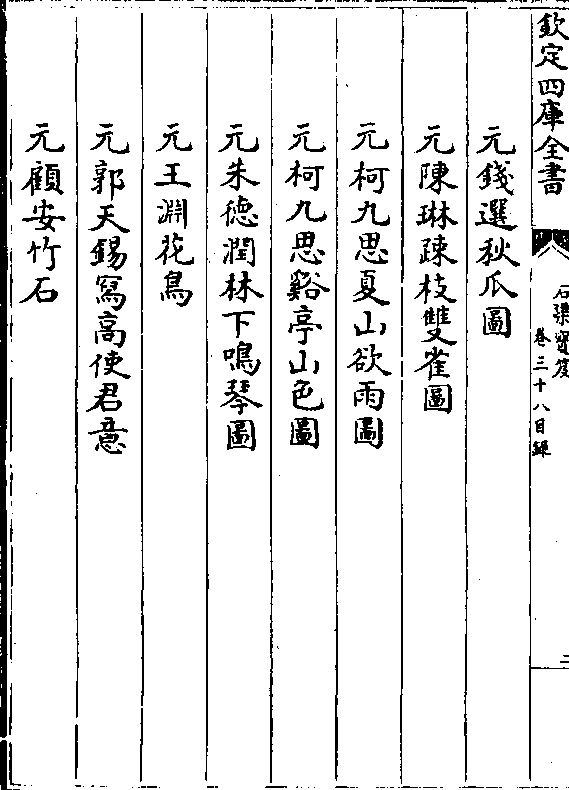 欽定四庫全書
石渠寳笈
卷三十八目録
二
元錢選秋瓜圖
元陳琳疎枝雙雀圖
元柯九思夏山欲雨圖
元柯九思谿亭山色圖
元朱德潤林下鳴琴圖
元王淵花鳥
元郭天錫寫高使君意
元顧安竹石